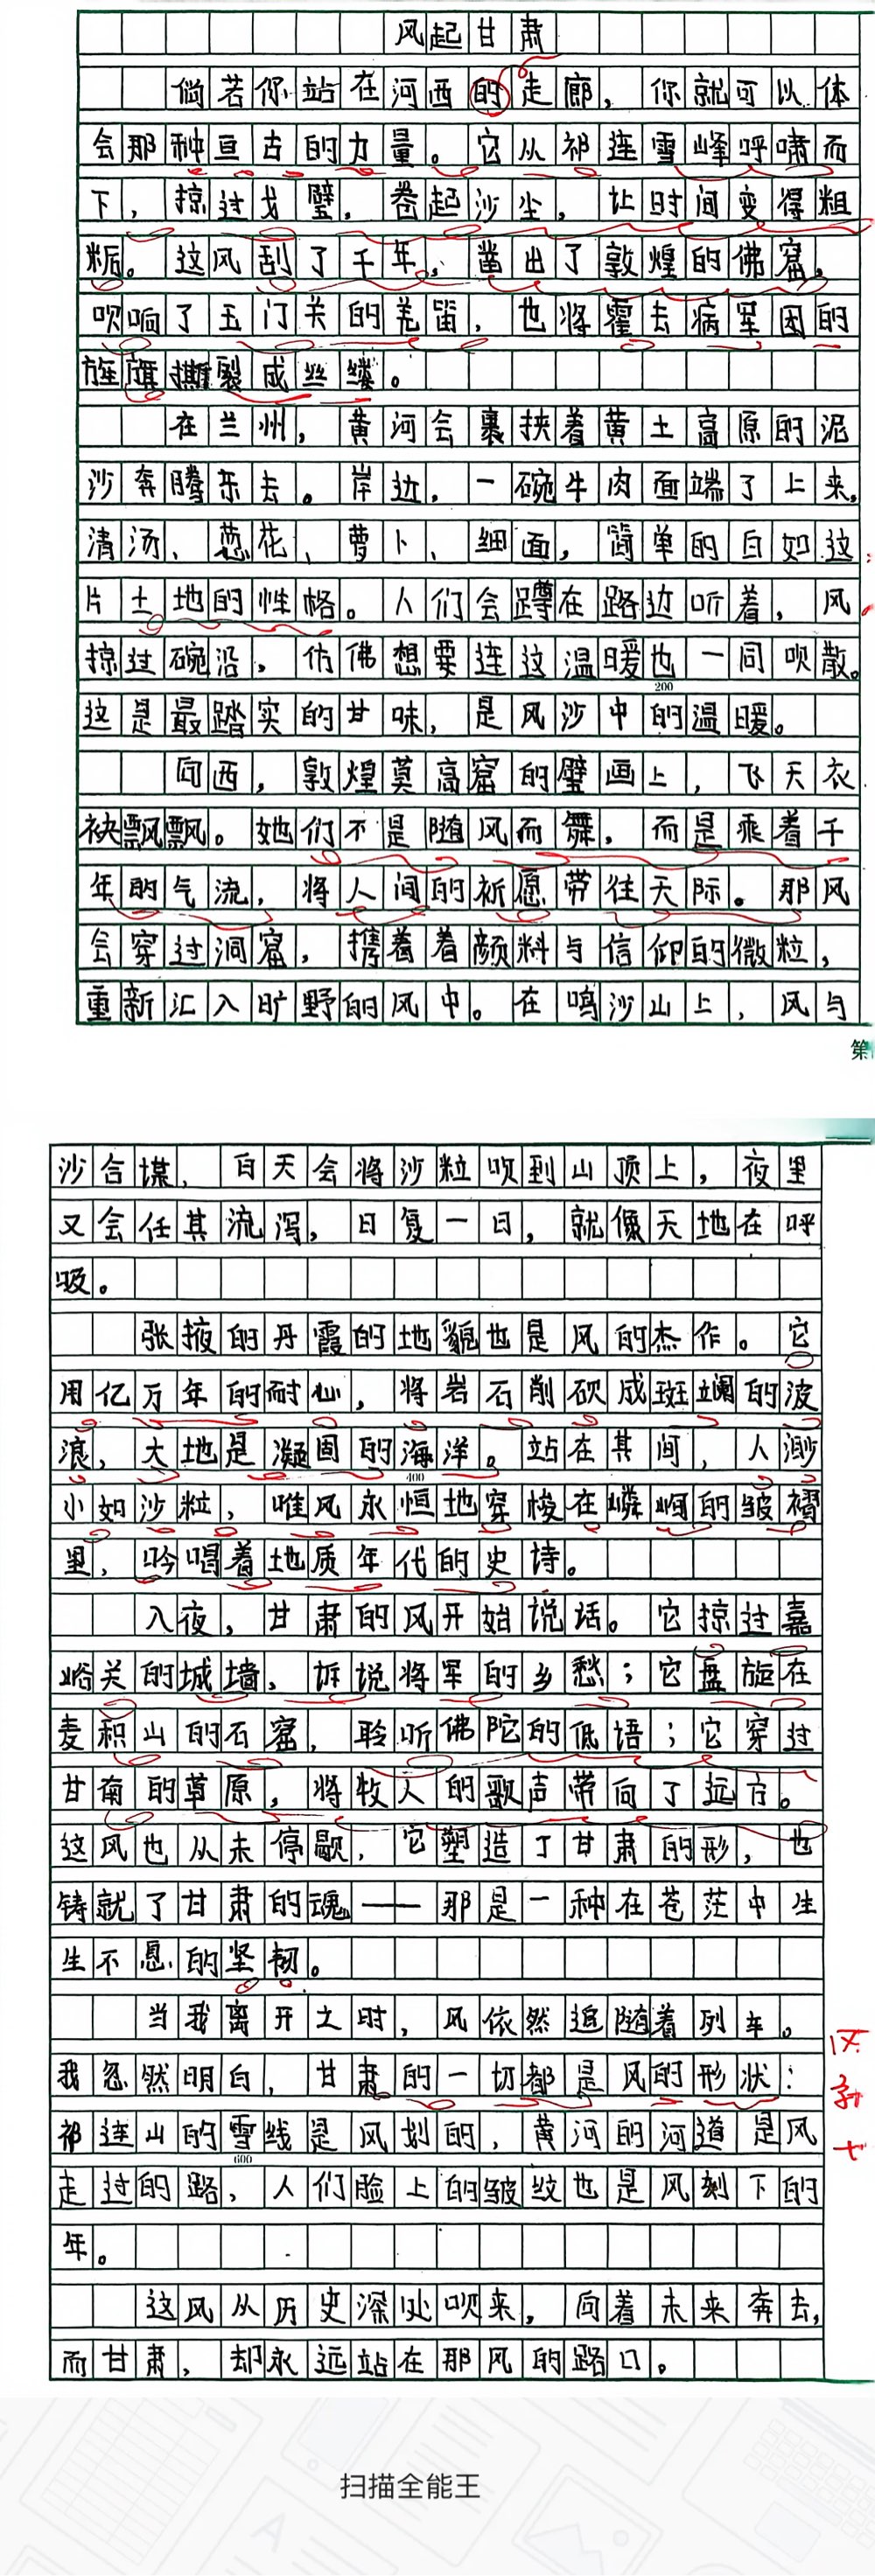 风起甘肃
倘若你站在河西的走廊，你就可以体
会那种亘古的力量。它从祁连雪峰呼啸而
下，掠过戈壁，卷起沙尘，让时间变得粗
粝。这风刮了千年，凿出了敦煌的佛窟，
吹响了玉门关的羌笛，也将霍去病军团的
旌旗撕裂成丝缕。
在兰州，黄河会裹挟着黄土高原的泥
沙奔腾东去。岸边，一碗牛肉面端了上来，
清汤、葱花、萝卜、细面，简单的自如这
片土地的性格。人们会蹲在路边听着，风
掠过碗沿，仿佛想要连这温暖也一同吹散。
200
这是最踏实的甘味，是风沙中的温暖。
向西，敦煌莫高窟的壁画上，飞天衣
袂飘飘。她们不是随风而舞，而是乘着千
年的气流，将人间的祈愿带往天际。那风
会穿过洞窟，携着着颜料与信仰的微粒，
重新汇入旷野的风中。在鸣沙山上，风与
第
沙合谋，白天会将沙粒吹到山顶上，夜里
又会任其流泻，日复一日，就像天地在呼
吸。
张掖的丹霞的地貌也是风的杰作。它
用亿万年的耐心，将岩石削砍成斑斓的波
浪，大地是凝固的海洋。站在其间，人渺
400
小如沙粒，唯风永恒地穿梭在嶙峋的皱褶
里，吟唱着地质年代的史诗。
入夜，甘肃的风开始说话。它掠过嘉
峪关的城墙，诉说将军的乡愁；它盘旋在
麦积山的石窟，聆听佛陀的低语；它穿过
甘南的草原，将牧人的歌声带向了远方。
这风也从未停歇，它塑造了甘肃的形，也
铸就了甘肃的魂——那是一种在苍茫中生
生不息的坚韧。
当我离开之时，风依然追随着列车。
我忽然明白，甘肃的一切都是风的形状：
祁连山的雪线是风划的，黄河的河道是风
600
走过的路，人们脸上的皱纹也是风刻下的
年。
这风从历史深处吹来，向着未来奔去，
而甘肃，却永远站在那风的路口。
扫描全能王